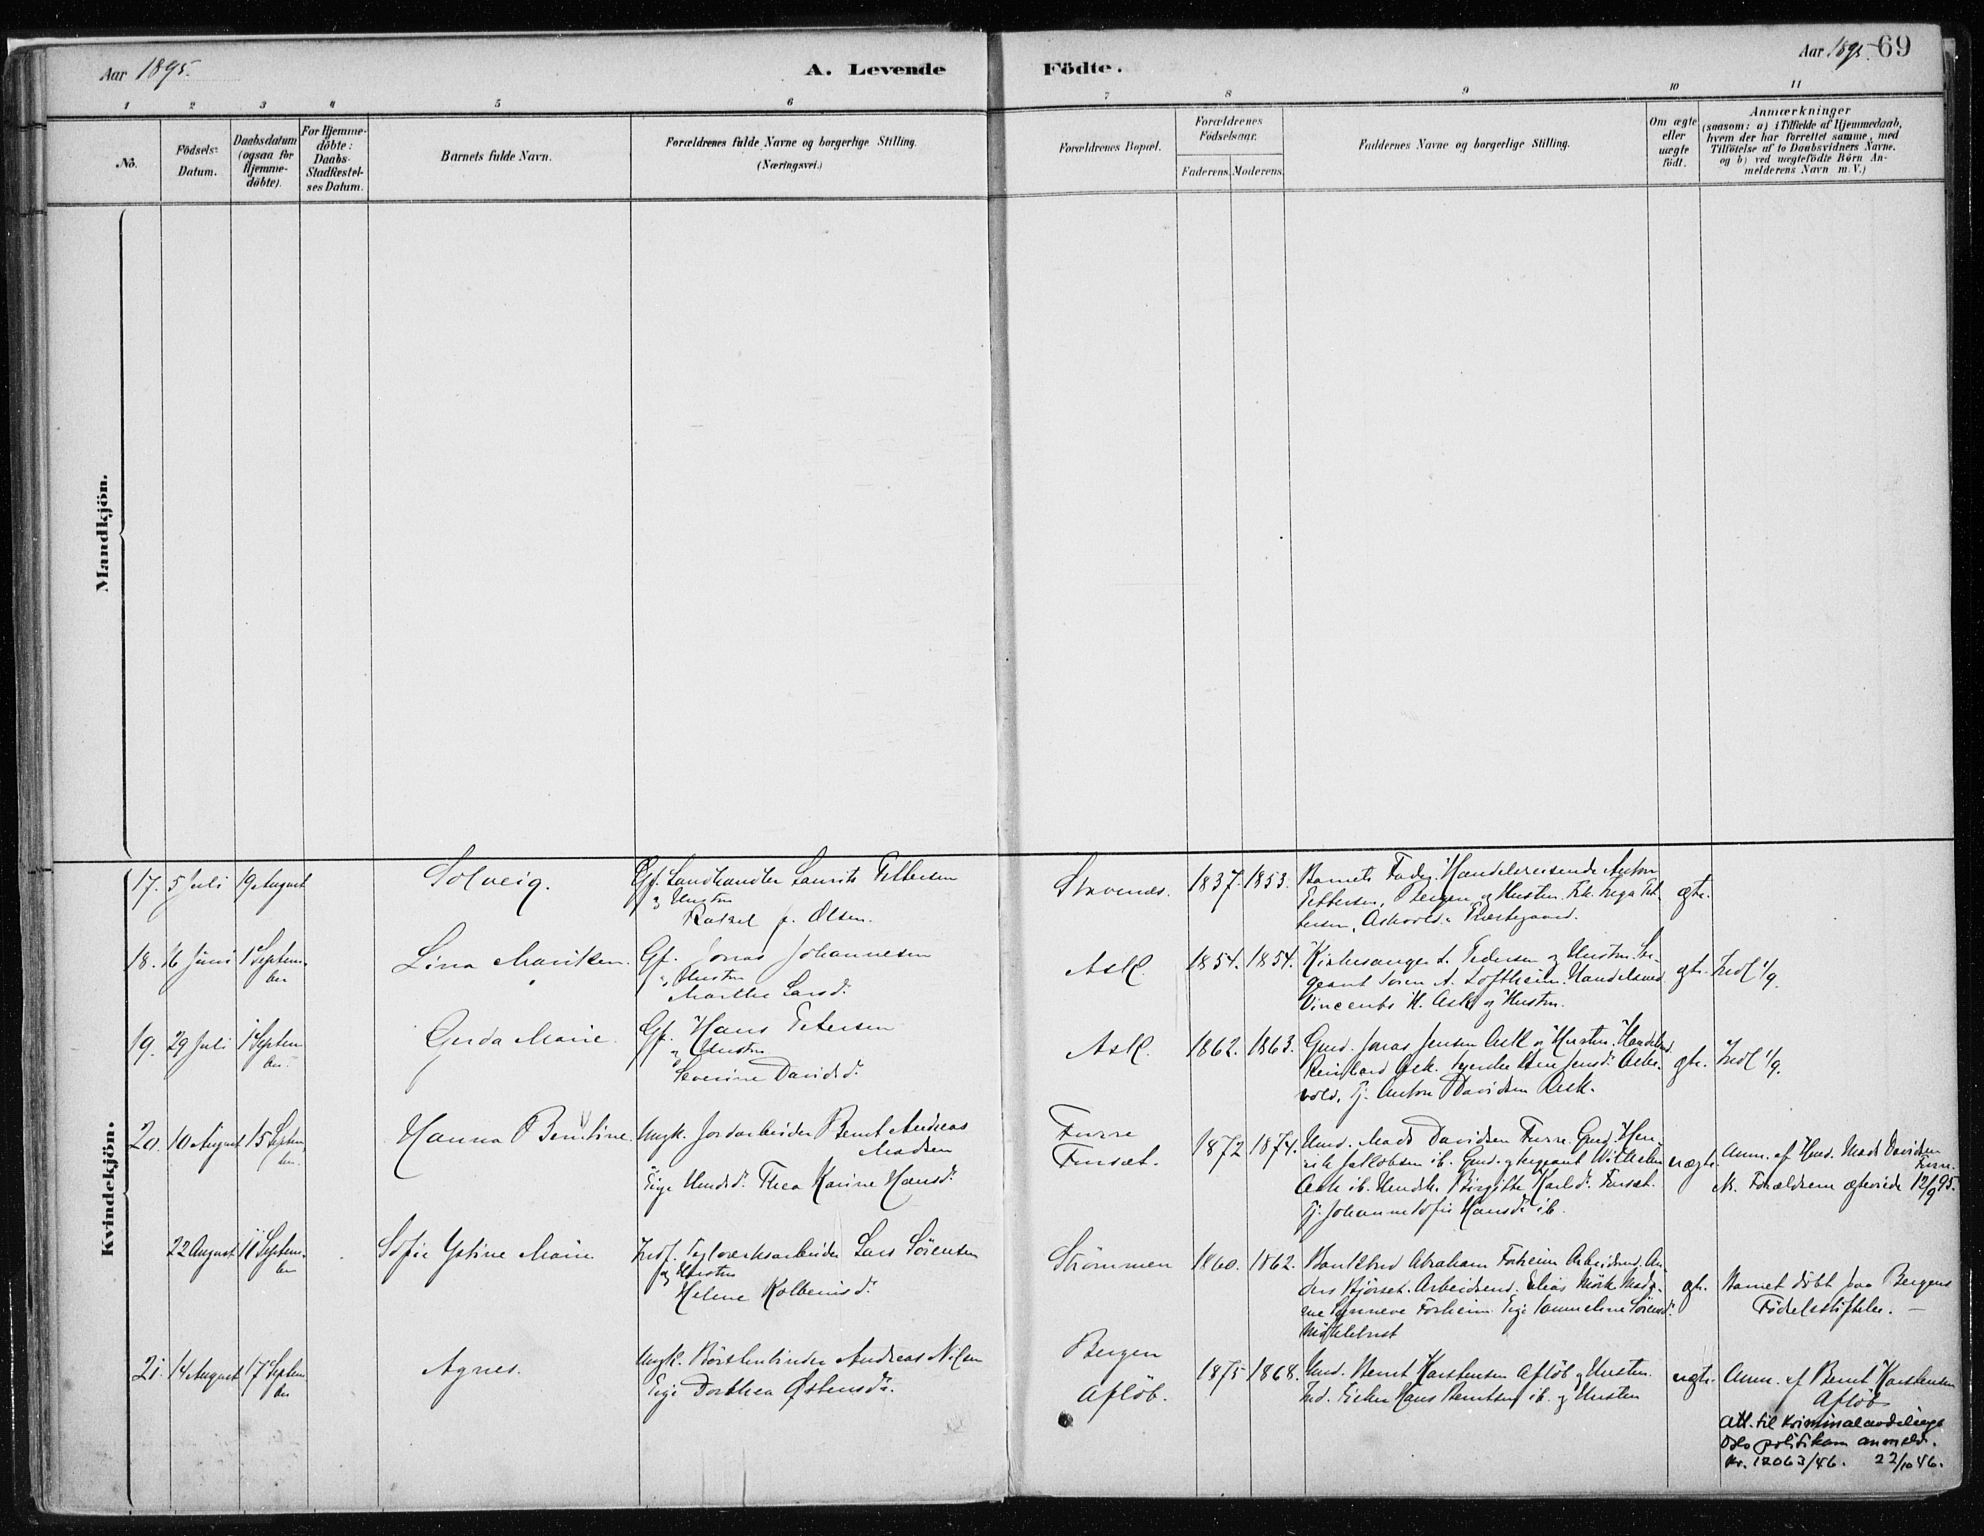 Aar 1895.
A. Levende
Födte.
Aar 1895. 69
1 2 3 4 5 6 7 8 9 10 11
No.
Födsels-
Datum.
Daabsdatum
(ogsaa for
Hjemme-
döbte).
For Hjemme-
döbte:
Daabs-
Stadfæstel-
ses Datum.
Barnets fulde Navn.
Forældrenes fulde Navne og borgerlige Stilling.
(Næringsvei.)
Forældrenes Bopæl.
Forældrenes
Födselsaar.
Faderens. Moderens.
Faddernes Navne og borgerlige Stilling.
Om ægte
eller
uægte
födt.
Anmærkninger
(saasom: a) i Tilfælde af Hjemmedaab,
hvem der har forrettet samme, med
Tilföielse af to Daabsvidners Navne.
og b) ved uægtefödte Börn An-
melderens Navn m. V.)
Mandkjön.
Kvindekjön.
17. 5 Juli 19 August
Solveig.
Gf. Landhandler Laurits Pettersen
og Hustru
Rakel f. Olsen.
Stavenæs.
1837. 1853.
Barnets Fader. Handelsreisende Anton
Pettersen, Bergen og Hustru. Frk. Inga Pet-
tersen, Askvold.
ægte.
18. 16 Juni 1 Septem-
ber
Lina Maritken.
Gf. Jonas Johannesen
og Hustru
Marthe Larsd.
Ask.
1854. 1854.
Kirkesanger L. Pedersen og Hustru. Ser-
geant Sören A. Loftheim. Handelsmd
Vincents H. Ask og Hustru.
ægte. Indl 1/9
19. 29 Juli 1 Septem
ber.
Gerda Marie.
Gf. Hans Petersen
og Hustru
Severine Davidsd.
Ask.
1862. 1863.
Gmd. Jonas Jensen Ask og Hustru. Handelsmd.
Reinhard Ask. Jensd. Ask-
vold. Pj. Anton Davidsen Ask.
ægte. Indl 1/9.
20. 10 August 15 Septem
ber.
Hanna Bentine.
Ungk. Jordarbeider Bernt Andreas
Madsen
Pige Thea Karine Hansd.
Furre
Fursæt.
1872 1874.
Hmd. Mads Davidsen Furre. Gmd. Hen-
rik Jakobsen ib. Gmd. og Sergeant Wilhelm
Ask ib. Birgitte Karlsd. Fursæt.
Pj. Johanne Sofie Hansd. ib.
uægte.
Anm. af Hmd. Mads Davidsen
Furre.
N. Forældrene ægteviede 12/9 95.
22 August 11 Septem-
ber
Sofie Ystine Marie
Indf. Teglværksarbeider Lars Sörensen
og Hustru
Helene Kolbeinsd.
Strömmen
1860. 1862.
Abraham Forheim Arbeidsmd. An-
ders Björset. Arbeidsmd. Elias Mörk.
Synneve Forheim Pige Sörensd.
Myklebust
ægte.
Barnet döbt paa Bergens
Födselsstiftelse. —
21. 14 August 17 Septem
ber
Agnes.
Ungk. Börstenbinder Andreas Nilsen
Pige Dorthea Östensd.
Bergen
Aflöb.
1875 1868.
Hmd. Bernt Karstensen Aflöb og Hustru.
Ind. Fisker Hans Berntsen ib. og Hustru
uægte.
Anm. af Bernt Karstensen
Aflöb
Att. til Kriminalavdelingen
Oslo politikam anmeld.
Nr. 12063/46. 22/10 46.